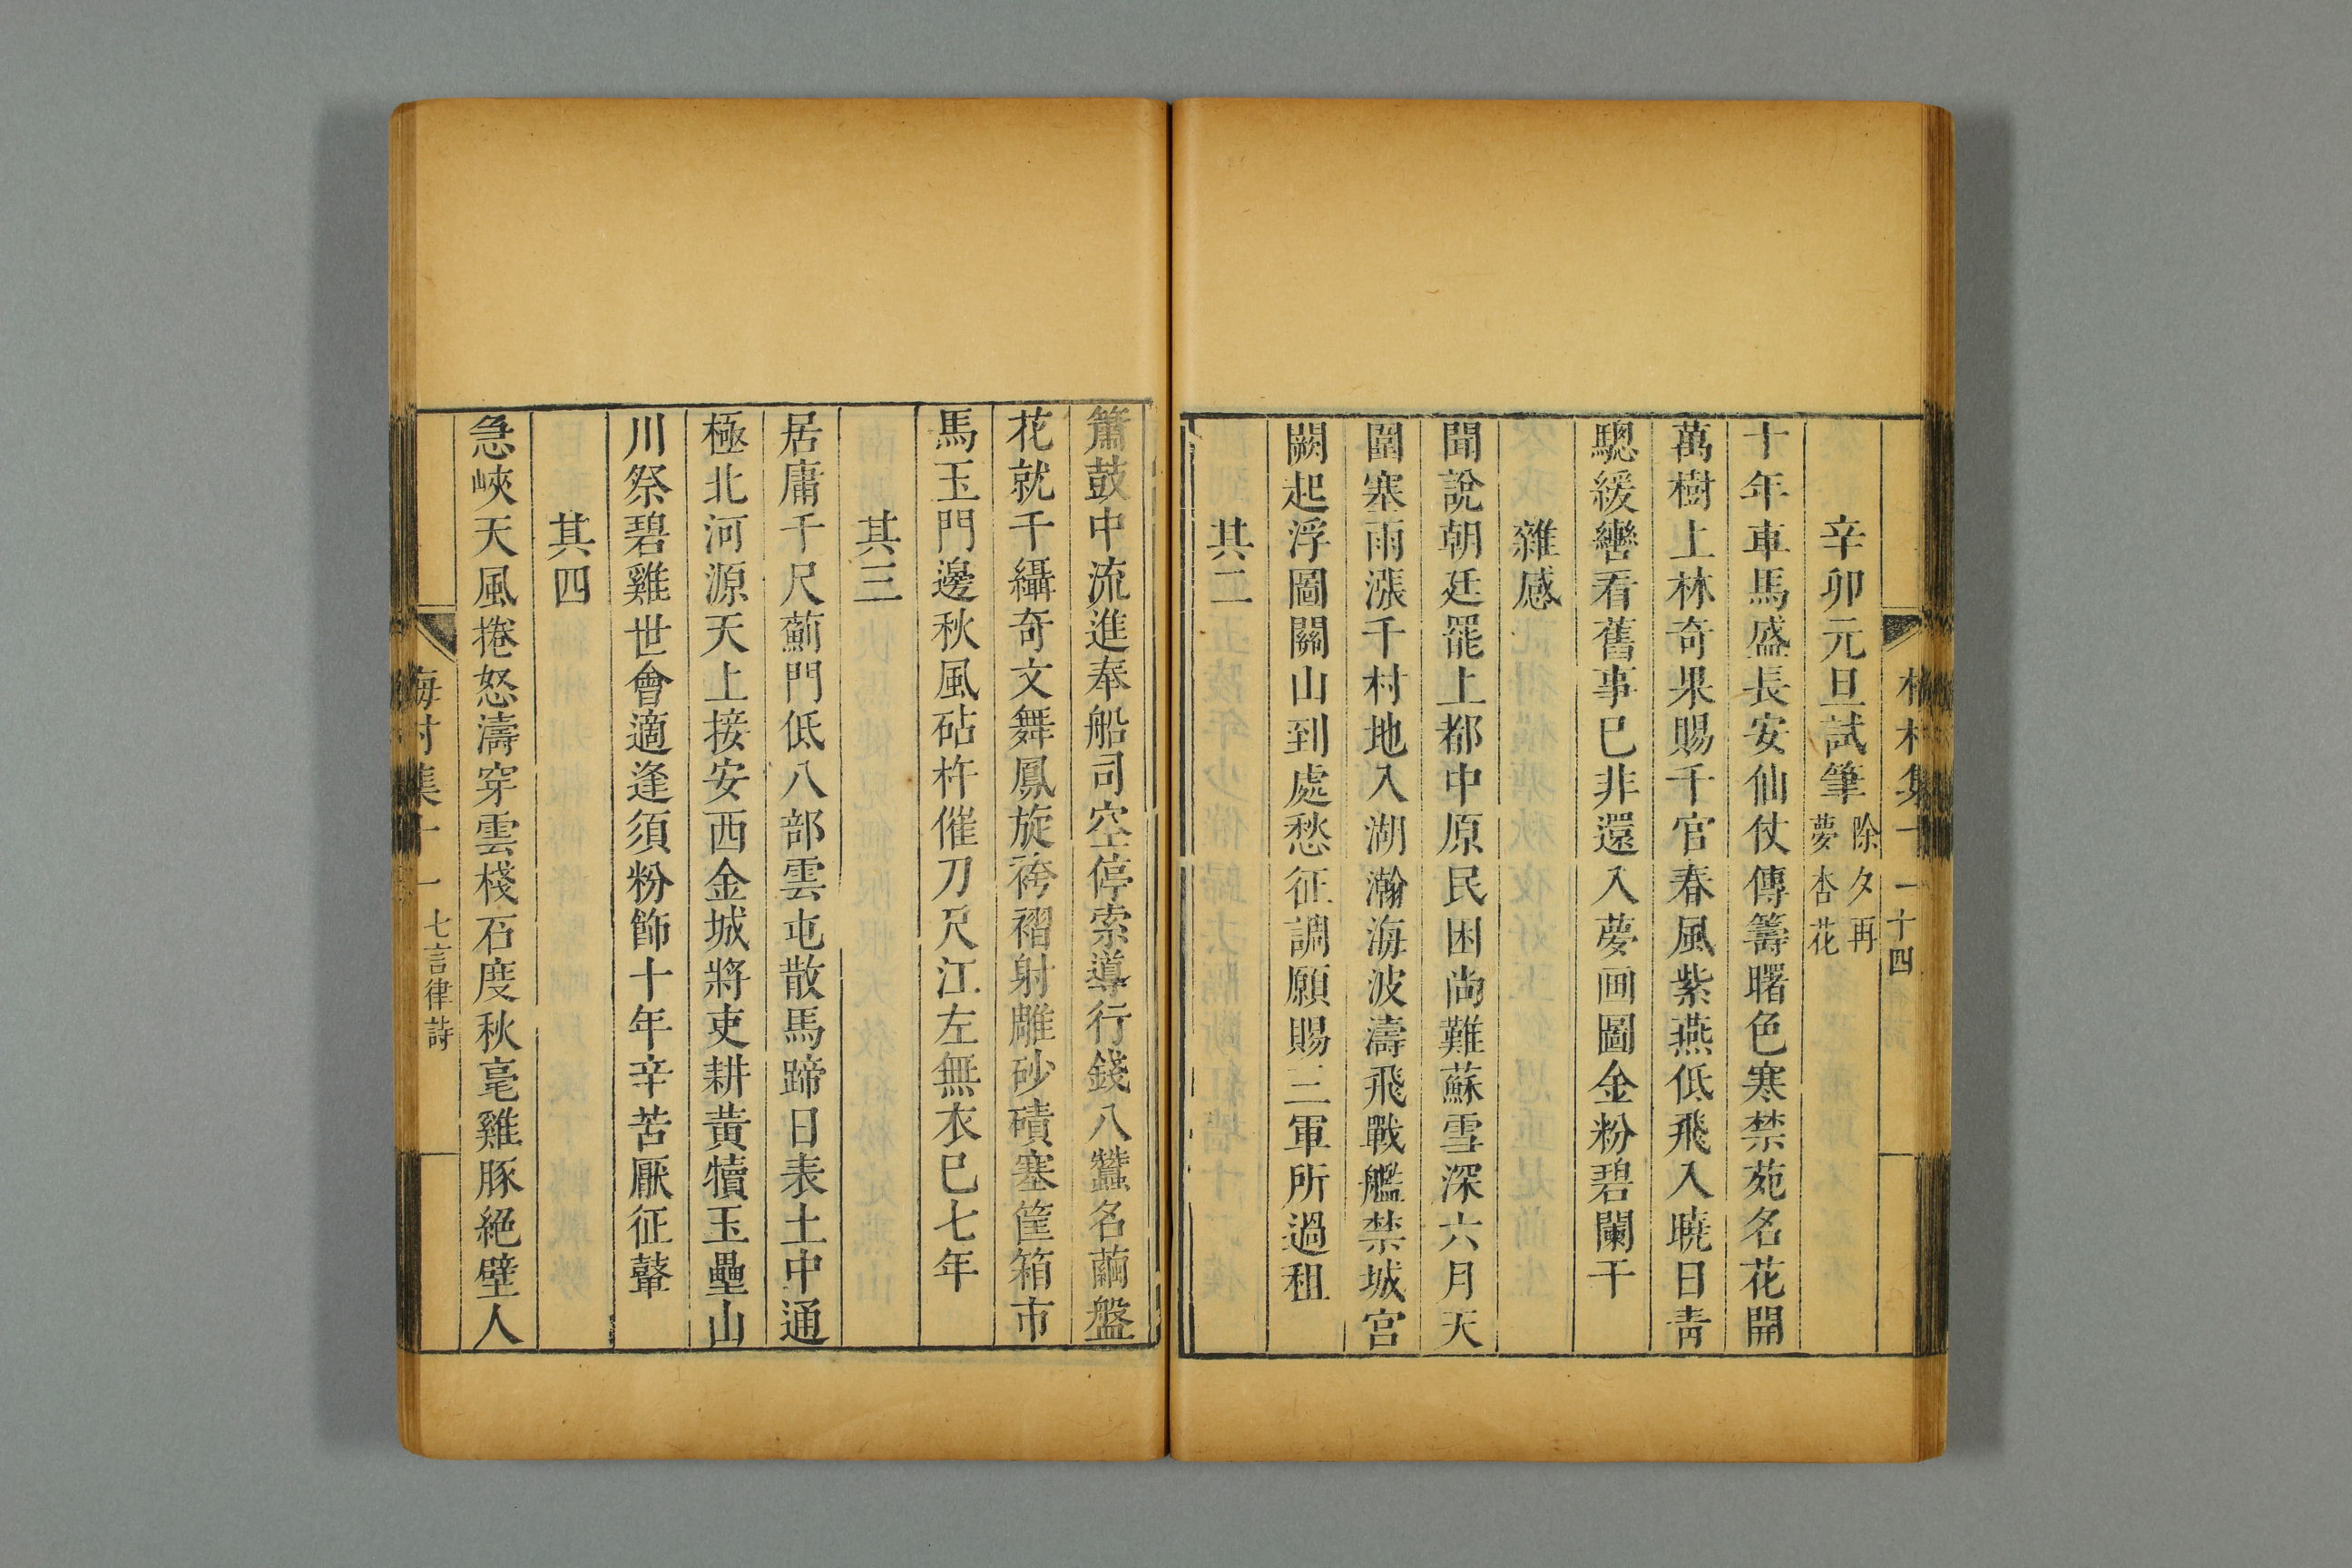 梅村集十一 二十四
辛卯元旦試筆 除夕再夢杏花
十年車馬盛長安仙仗傳籌曙色寒禁苑名花開
萬樹上林奇果賜千官春風紫燕低飛入曉日青
驄緩轡看舊事已非還入夢画圖金粉碧闌干
雜感
聞說朝廷罷上都中原民困尚難蘇雪深六月天
圍塞雨漲千村地入湖瀚海波濤飛戰艦禁城宮
闕起浮圖關山到處愁征調願賜三軍所過租
其二
簫鼓中流進奉船司空停索導行錢八蠶名繭盤
花就千緝奇文舞鳳旋袴褶射雕砂磧塞筐箱市
馬玉門邊秋風砧杵催刀尺江左無衣已七年
其三
居庸千尺薊門低八部雲屯散馬蹄日表土中通
極北河源天上接安西金城將吏耕黃犢玉壘山
川祭碧雞世會適逢須粉飾十年辛苦厭征鼙
其四
急峽天風捲怒濤穿雲棧石度秋毫雞豚絕壁人
梅村集十一 七言律詩